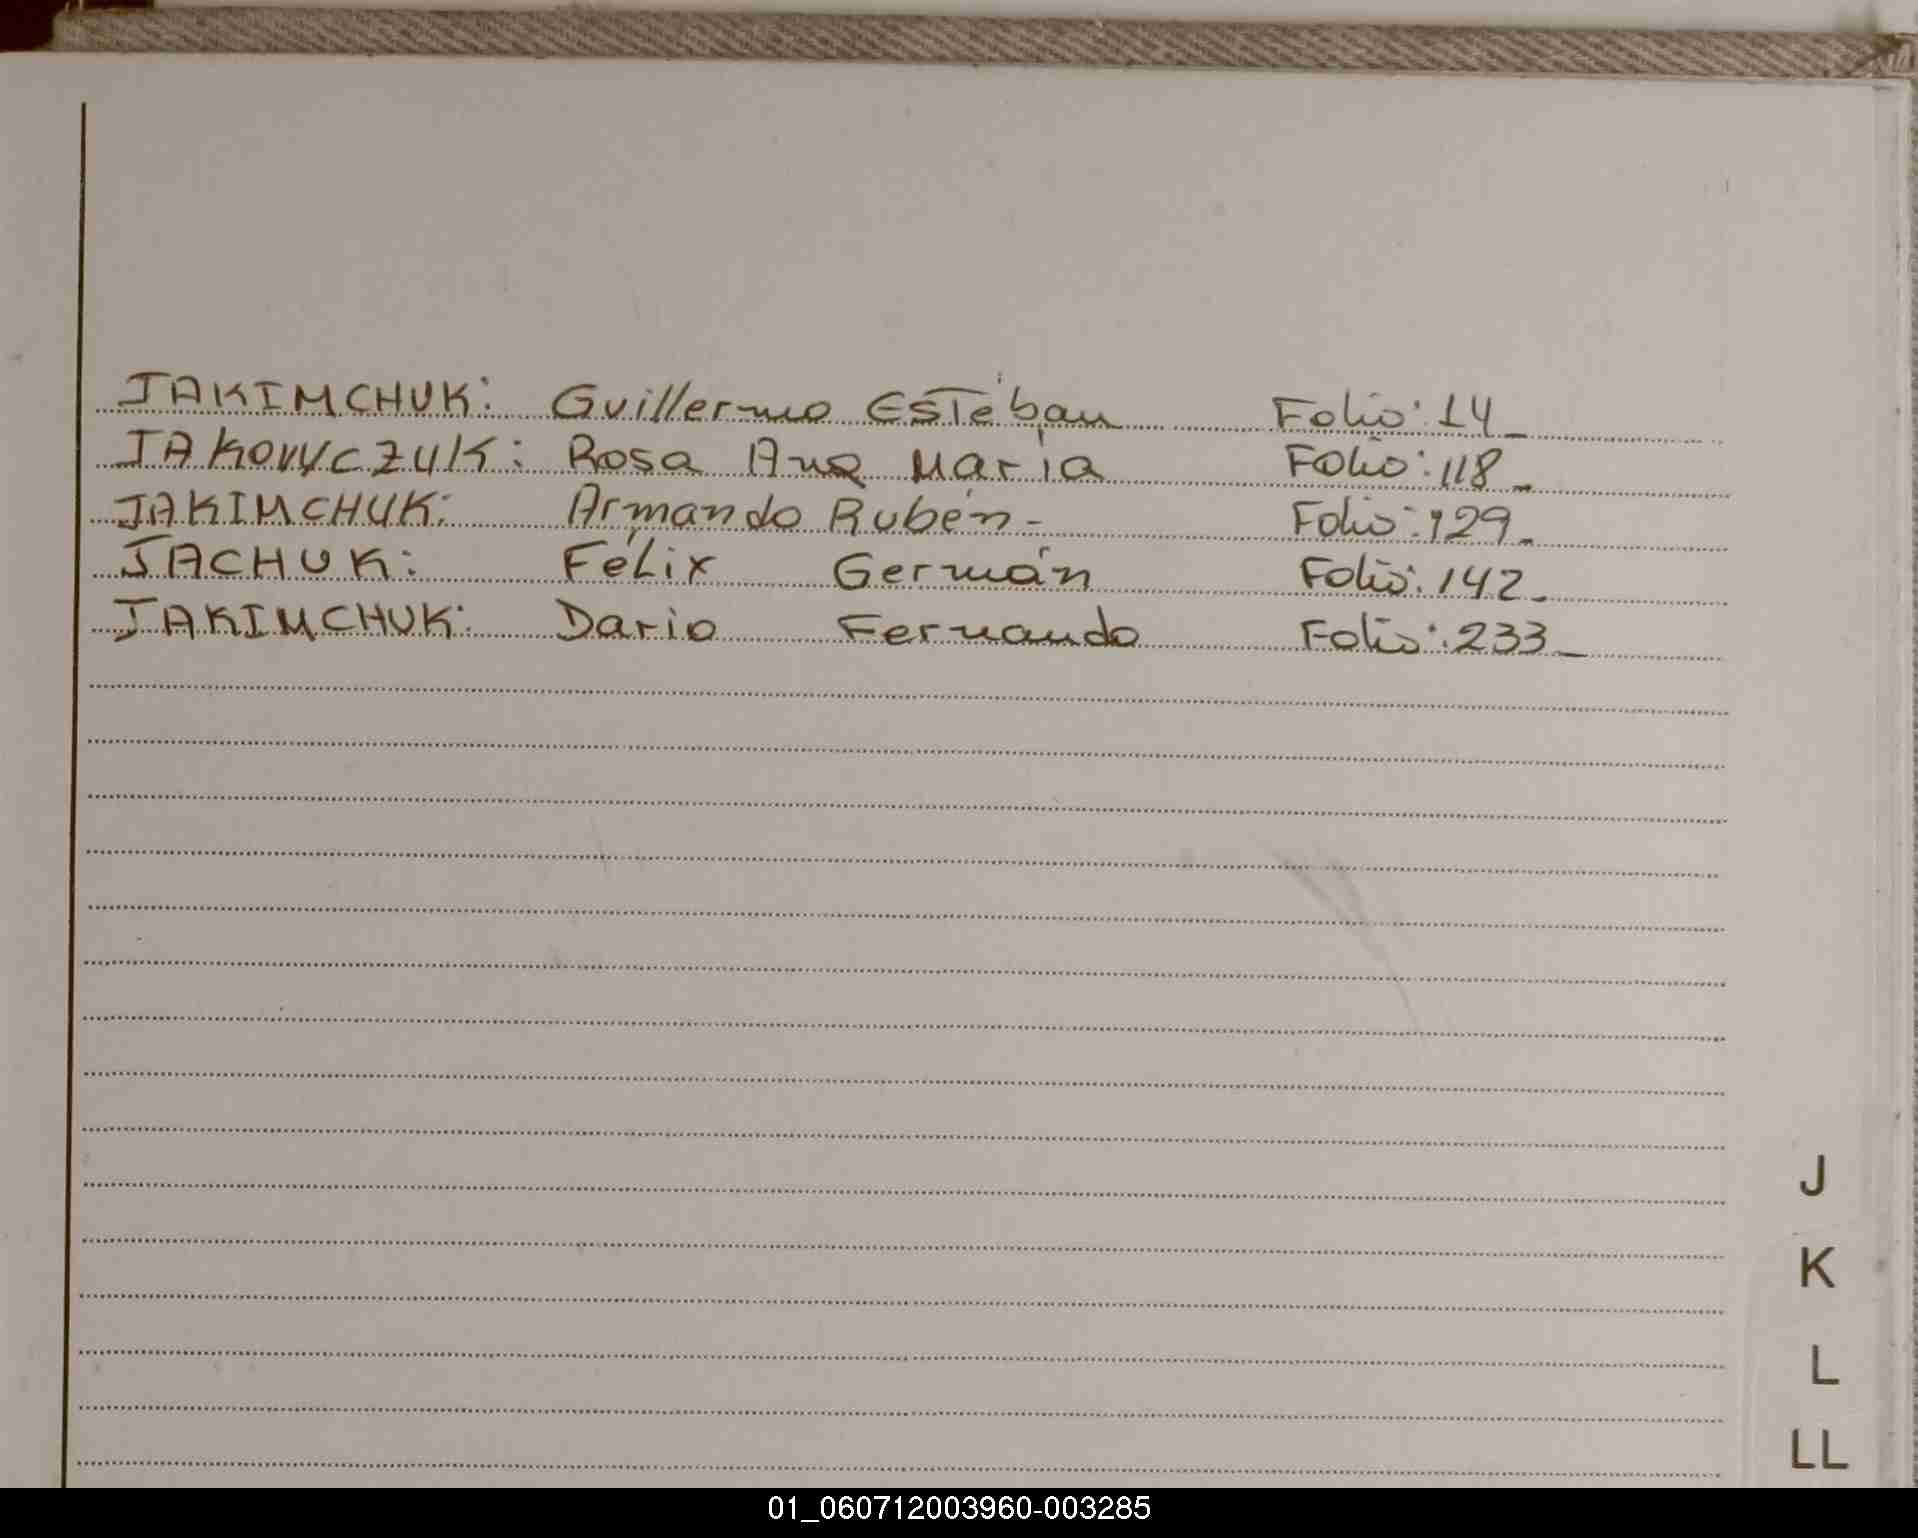 JAKIMCHUK: Guillermo Esteban Folio: 14_
JAKOWYCZUK: Rosa Ana María Folio: 118_
JAKIMCHUK: Armando Rubén- Folio: 129_
JACHUK: Félix Germán Folio: 142_
JAKIMCHUK: Dario Fernando Folio: 233_
J
K
L
LL
01_060712003960-003285